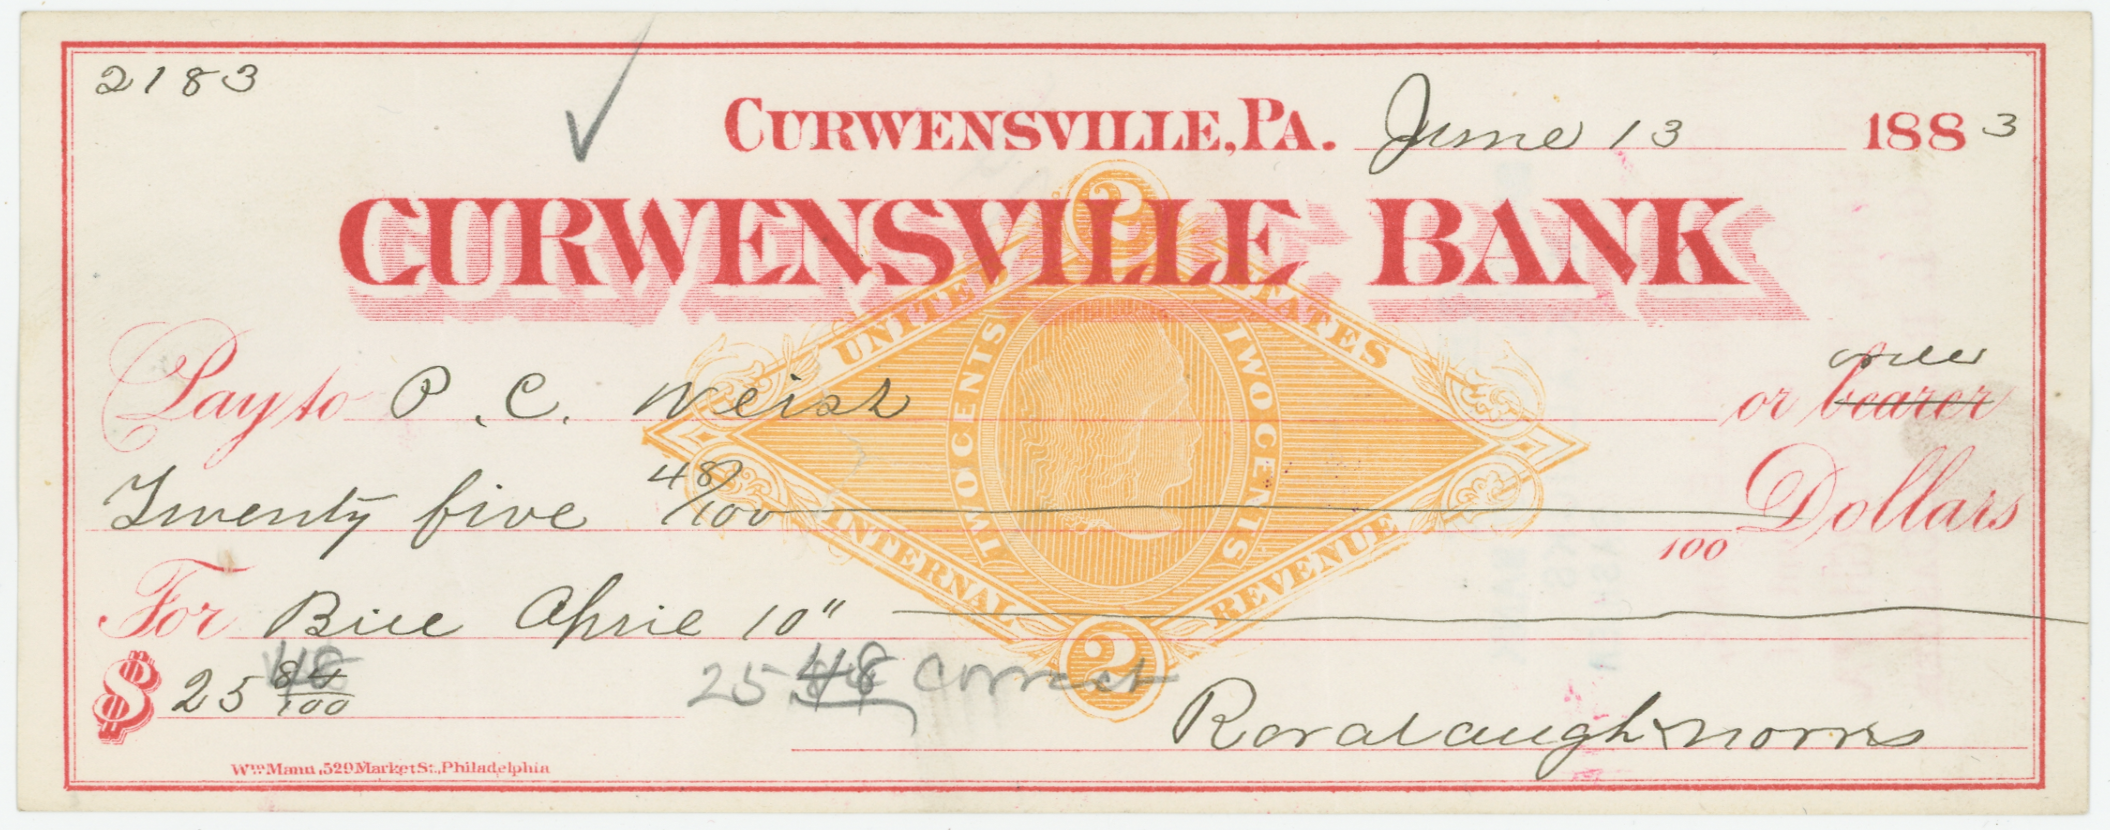 2183
CURWENSVILLE, PA. June 13 1883
CURWENSVILLE BANK
2
UNITED STATES
TWO CENTS TWO CENTS
order
Pay to P. C. Weist or bearer
Twenty five 48/100 Dollars
100
INTERNAL REVENUE
For Bill April 10"
2
$ 25 48 84/100 25 48 correct
Roralaugh & Norris
Wm Mann, 529 Market St., Philadelphia